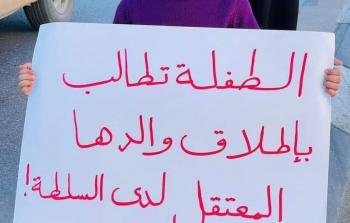 الطفلة تطالب
بإطلاق والدها
المعتقل لدى السلطة!